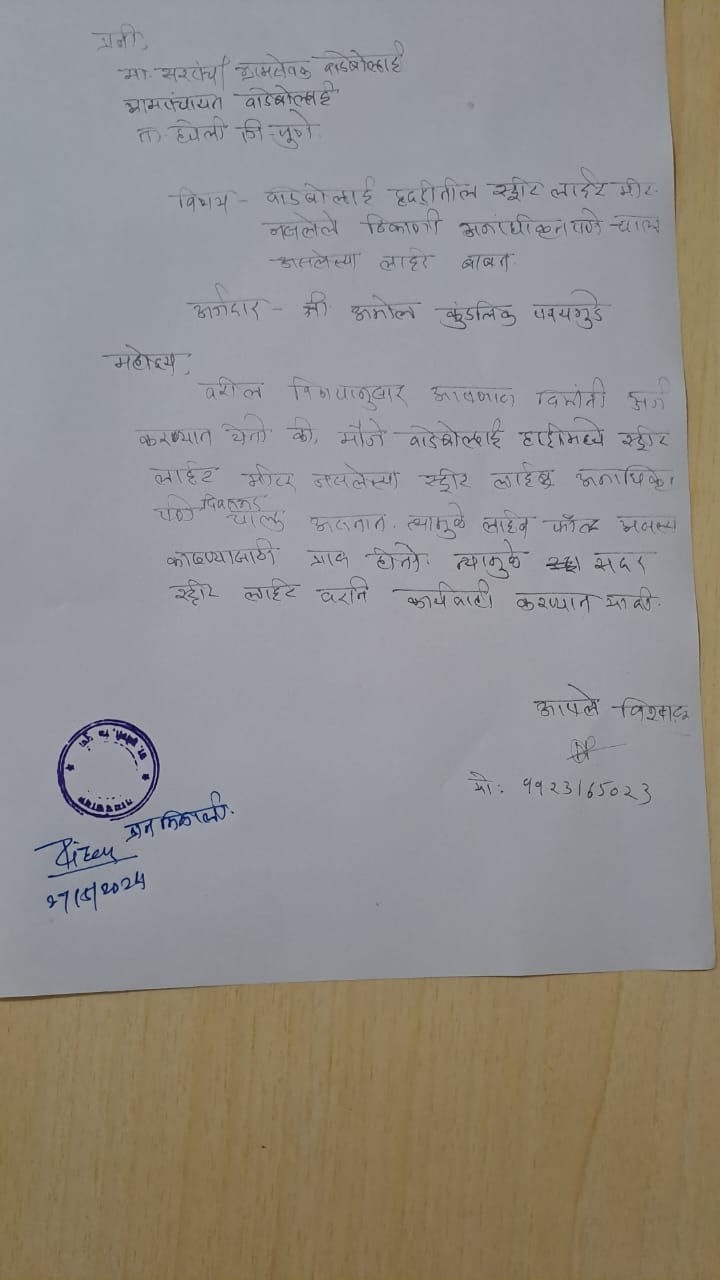 प्रती,
मा. सरपंच / ग्रामसेवक वाडेबोल्हाई
ग्रामपंचायत वाडेबोल्हाई
ता. हवेली जि-पुणे.
विषय - वाडेबोल्हाई हद्दीतील स्ट्रीट लाईट मीटर
नसलेले ठिकाणी अनाधीकृतपणे चालू
असलेल्या लाईट बाबत.
अर्जदार - श्री अमोल कुंडलिक
महोदय,
वरील विषयानुसार आपणास विनंती अर्ज
करण्यात येतो की, मौजे वाडेबोल्हाई हद्दीमध्ये स्ट्रीट
लाईट मीटर नसलेल्या स्ट्रीट लाईट अनाधिकृ
पणे दिवसभर चालु असतात. त्यामुळे लाईन फॉल्ट
काढण्यासाठी त्रास होतो. त्यामुळे सदर
स्ट्रीट लाईट वरति कार्यवाही करण्यात यावी.
आपले विश्वासू
मो: ९९२३१६५०२३
प्रत मिळाली.
27/5/2024